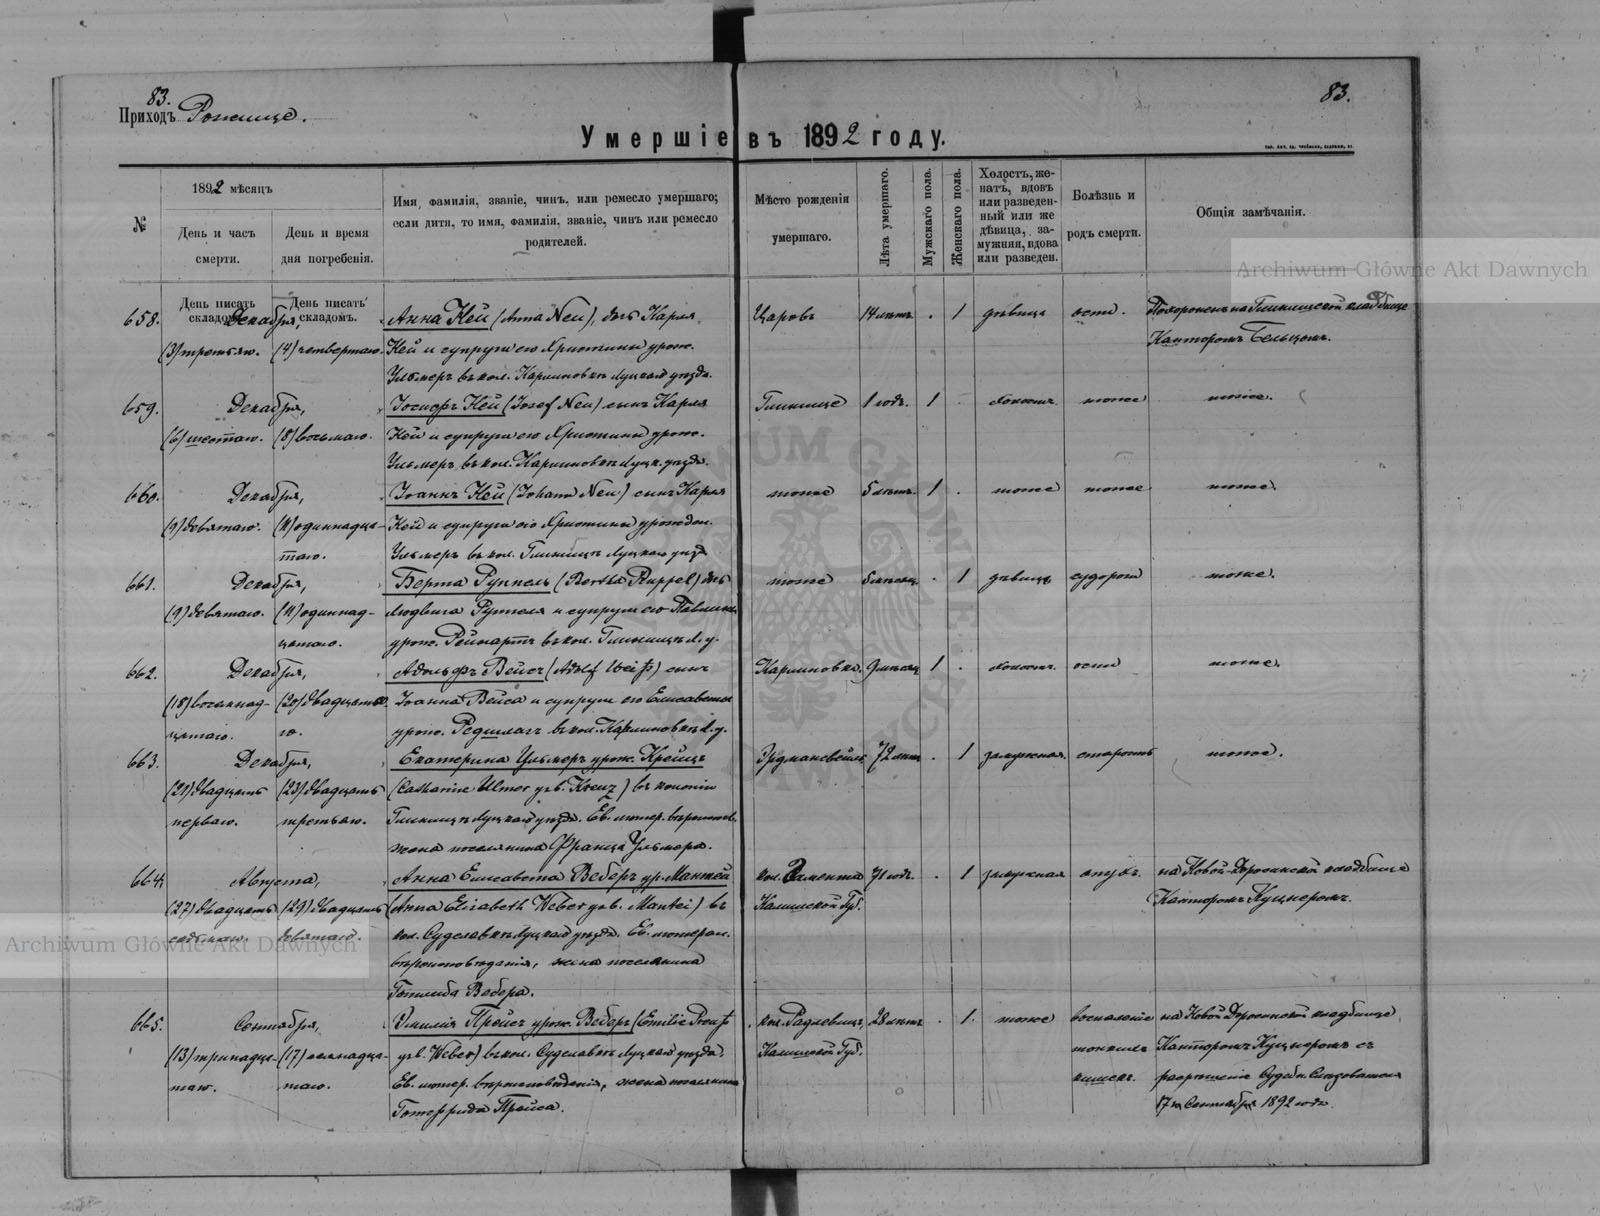 83.
83.
Приходъ Рожище.
Умершіе въ 1892 году.
№
1892 мѣсяцъ
День и часъ смерти.
День и время дня погребенія.
Имя, фамилія, званіе, чинъ, или ремесло умершаго;
если дитя, то имя, фамилія, званіе, чинъ или ремесло
родителей.
Мѣсто рожденія
умершаго.
Лѣта умершаго.
Мужскаго пола.
Женскаго пола.
Холостъ, же-
натъ, вдовъ
или разведен-
ный или же
дѣвица, за-
мужняя, вдова
или разведен.
Болѣзнь и
родъ смерти.
Общія замѣчанія.
День писать складомъ.
День писать складомъ.
658. Декабря, Анна Ней (Anna Neu), дочь Карла Царовъ 14 лѣтъ . 1 дѣвица оспа. Похороненъ на кладбище
(3) третьяго. (4) четвертаго. Ней и супруги его Христины урож. Канторомъ
Ульмеръ въ кол. Карлиновкѣ Луцкаго уѣзда.
659. Декабря, Іосифъ Ней (Josef Neu) сынъ Карла 1 годъ. 1 . холостъ тоже тоже.
(6) шестаго. (8) восьмаго. Ней и супруги его Христины урож.
Ульмеръ въ кол. Карлиновкѣ Луцк. уѣзда.
660. Декабря, Іоаннъ Ней (Johann Neu) сынъ Карла тоже 5 лѣтъ. 1 . тоже тоже тоже.
(9) девятаго. (11) одиннадца- Ней и супруги его Христины урожден.
таго. Ульмеръ въ кол. Луцкаго уѣзда
661. Декабря, Берта Руппель (Bertha Ruppel) дочь тоже . 1 дѣвица судороги тоже.
(9) девятаго. (11) одиннад- Людвига Руппеля и супруги его Павлины
цатаго. урож. Рейнартъ въ кол. Л. у.
662. Декабря, Адольфъ Вейсъ (Adolf Weiß) сынъ Карлиновка. 1 . холостъ оспа тоже.
(18) восемнад- (20) двадцата- Іоанна Вейса и супруги его Елисаветы
цатаго. го. урож. въ кол. Карлиновкѣ Л. у.
663. Декабря, Екатерина Ульмеръ урож. Крейцъ 72 лѣтъ . 1 замужняя старость тоже.
(21) двадцать (23) двадцать (Catharine Ulmer geb. Kreuz) въ колоніи
перваго. третьяго. Луцкаго уѣзда. Ев. лютер. вѣроисповѣд.
жена поселянина Франца Ульмера.
664. Августа, Анна Елисавета Веберъ ур. Мантей кол. 71 годъ. . 1 замужняя опухъ. на Ново-Доросинской кладбище
(27) двадцать (29) двадцать (Anna Elisabeth Weber geb. Mantei) въ Калишской Губ. Канторомъ
седьмаго. девятаго. кол. Суделавкѣ Луцкаго уѣзда. Ев. лютеран.
вѣроисповѣданія, жена поселянина
Готлиба Вебера.
665. Сентября, Эмилія Прейсъ урож. Веберъ (Emilie Preuß кол. 28 лѣтъ . 1. тоже воспаленіе на Ново Доросинской кладбище
(13) тринадца- (17) семнадца- geb. Weber) въ кол. Суделавкѣ Луцкаго уѣзда. Калишской Губ. тонкихъ Канторомъ съ
таго. таго. Ев. лютер. вѣроисповѣданія, жена поселянина кишекъ. разрѣшенія Судебн. Слѣдователя
Готфрида Прейса. 17 го Сентября 1892 года
Archiwum Główne Akt Dawnych
Archiwum Główne Akt Dawnych